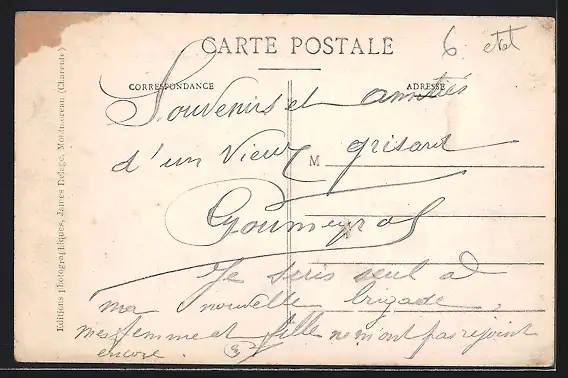 CARTE POSTALE
6
CORRESPONDANCE
ADRESSE
Souvenirs et amitiés
d'un Vieux grisard
M
Goumeyrol
Je suis seul à
ma nouvelle brigade,
mes femme et fille ne m'ont pas rejoint
encore.
Editions photographiques, James Delage, Montmoreau (Charente)